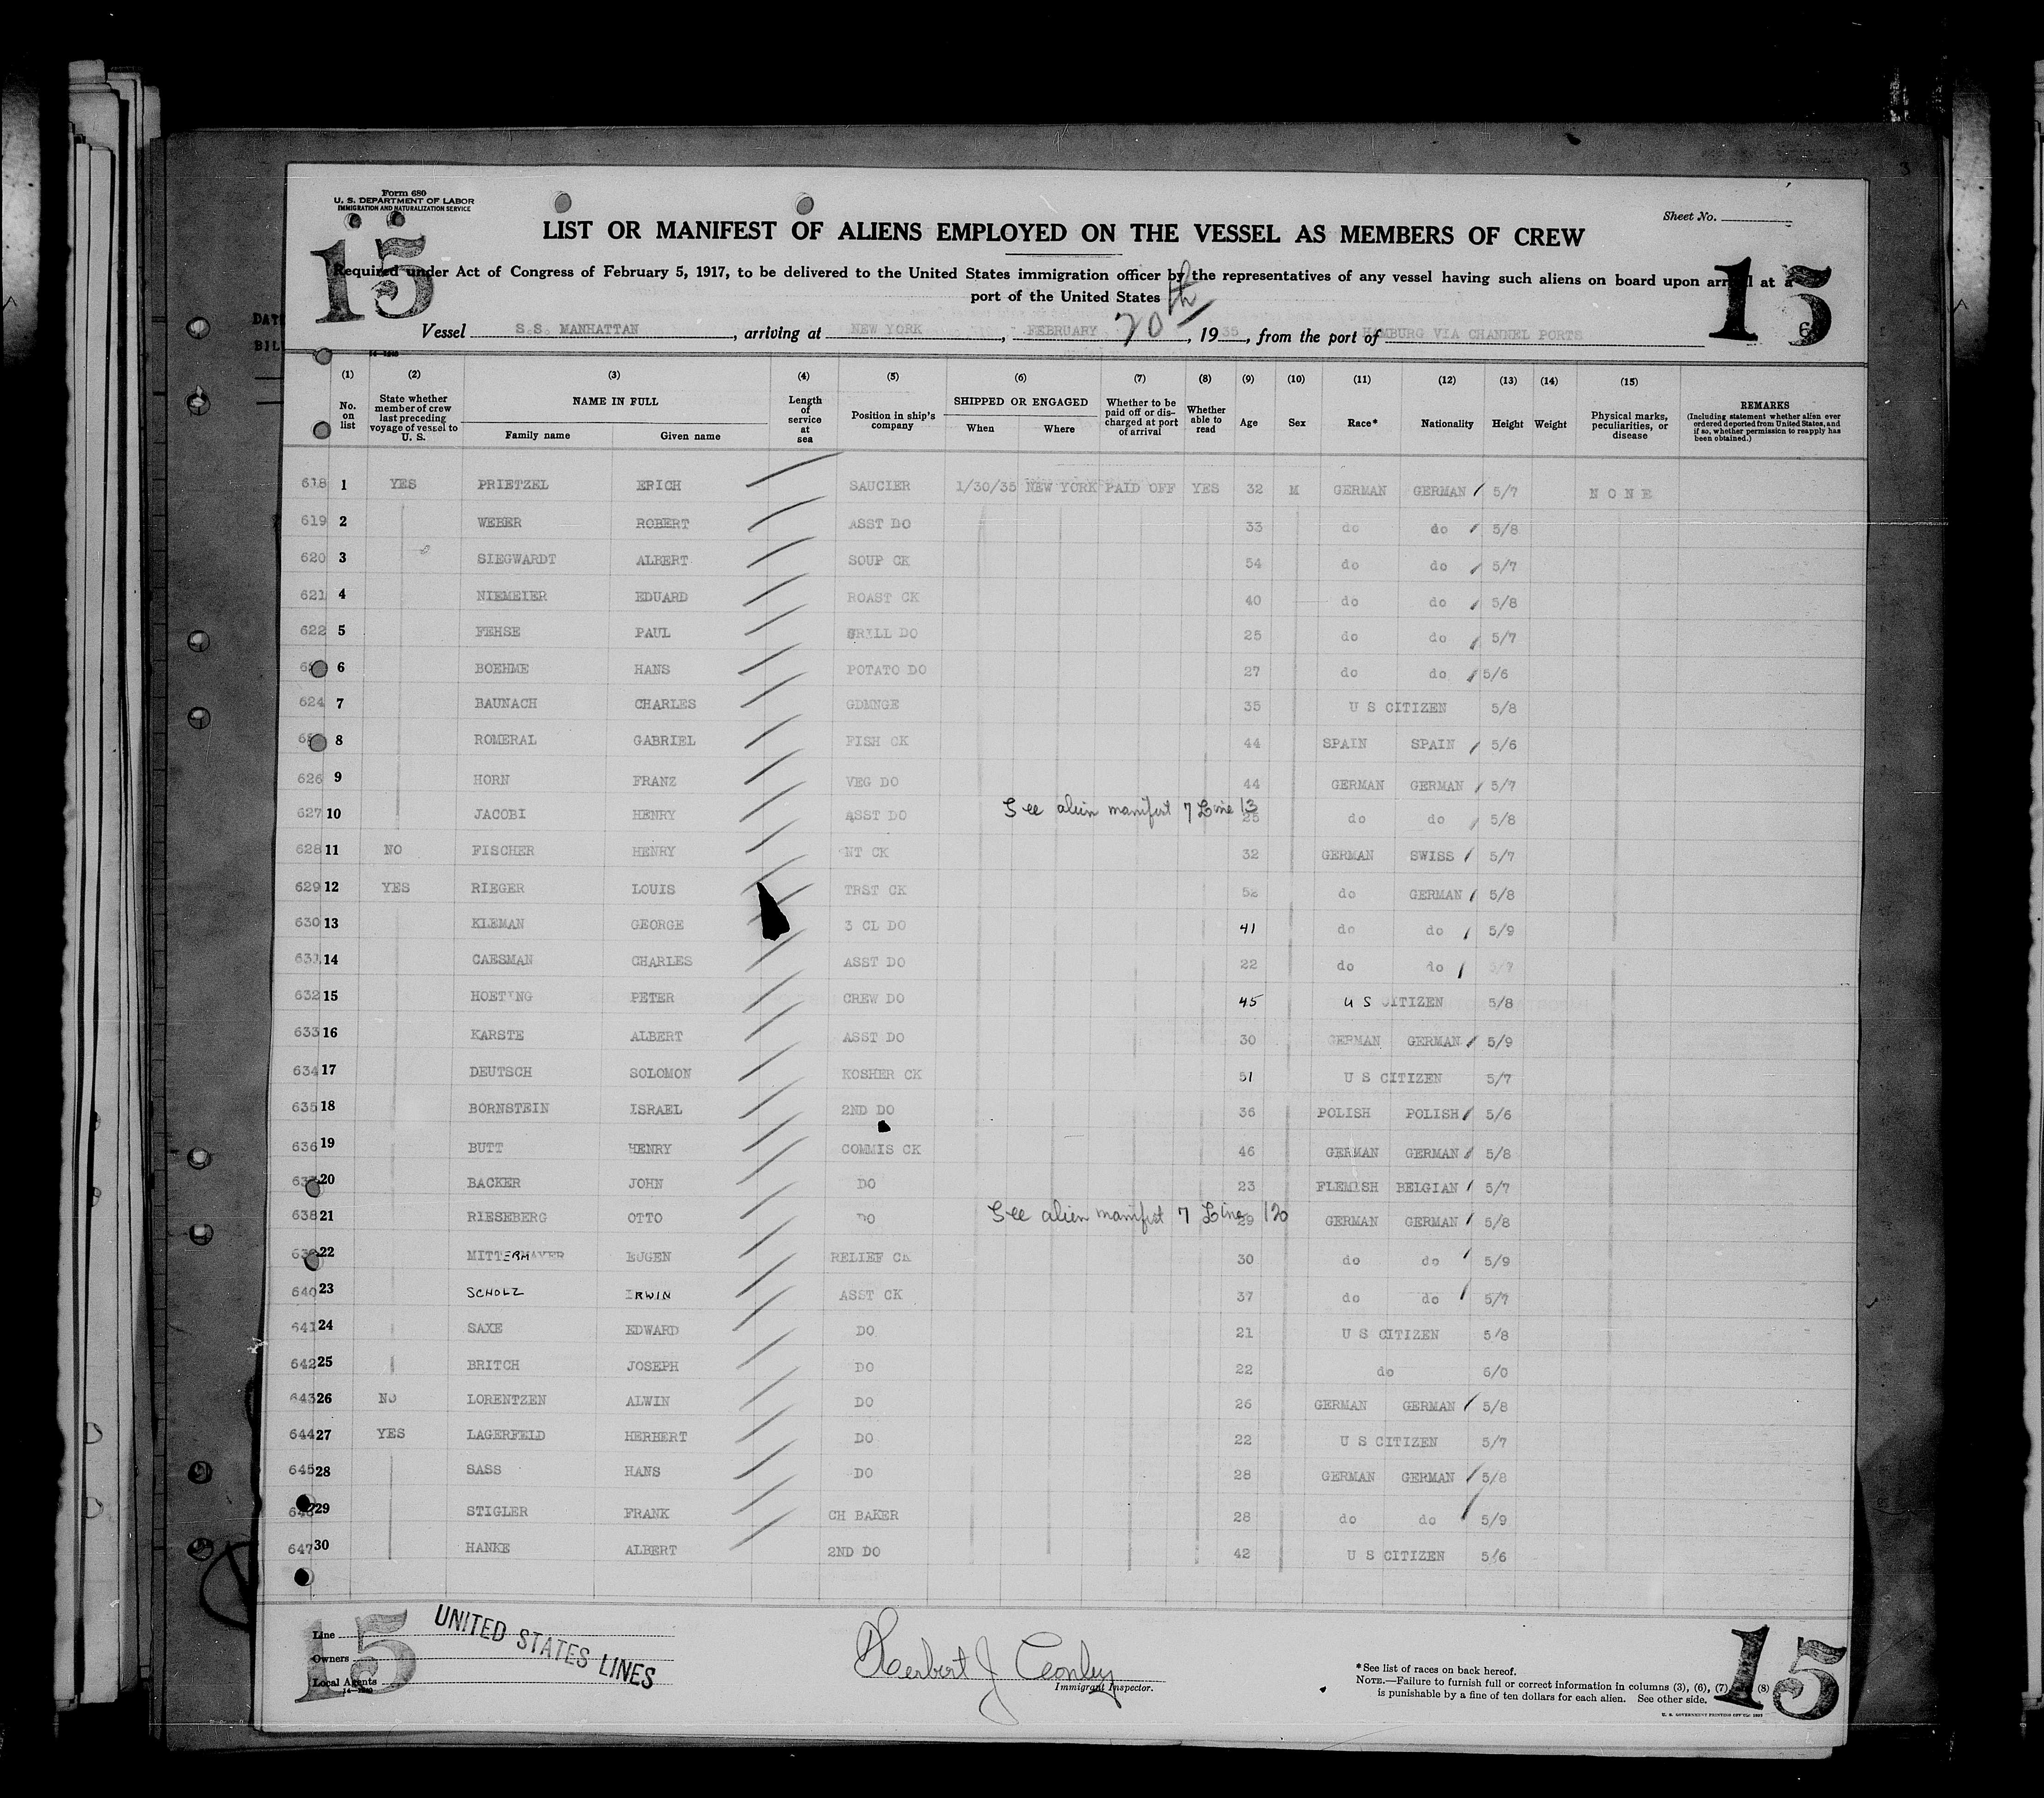 Form 680
U. S. DEPARTMENT OF LABOR
IMMIGRATION AND NATURALIZATION SERVICE
Sheet No.
15
15
LIST OR MANIFEST OF ALIENS EMPLOYED ON THE VESSEL AS MEMBERS OF CREW
Required under Act of Congress of February 5, 1917, to be delivered to the United States immigration officer by the representatives of any vessel having such aliens on board upon arrival at a
port of the United States
Vessel S.S. MANHATTAN, arriving at NEW YORK, FEBRUARY 20th, 1935, from the port of HAMBURG VIA CHANNEL PORTS
(1) (2) (3) (4) (5) (6) (7) (8) (9) (10) (11) (12) (13) (14) (15)
No. on list
State whether member of crew last preceding voyage of vessel to U. S.
NAME IN FULL
Family name Given name
Length of service at sea
Position in ship's company
SHIPPED OR ENGAGED
When Where
Whether to be paid off or discharged at port of arrival
Whether able to read
Age Sex Race* Nationality Height Weight
Physical marks, peculiarities, or disease
REMARKS
(Including statement whether alien ever ordered deported from United States, and if so, whether permission to reapply has been obtained.)
618 1 YES PRIETZEL ERICH SAUCIER 1/30/35 NEW YORK PAID OFF YES 32 M GERMAN GERMAN 5/7 NONE
619 2 WEBER ROBERT ASST DO 33 do do 5/8
620 3 SIEGWARDT ALBERT SOUP CK 54 do do 5/7
621 4 NIEMEIER EDUARD ROAST CK 40 do do 5/8
622 5 FEHSE PAUL GRILL DO 25 do do 5/7
6 BOEHME HANS POTATO DO 27 do do 5/6
624 7 BAUNACH CHARLES GDMNGE 35 U S CITIZEN 5/8
8 ROMERAL GABRIEL FISH CK 44 SPAIN SPAIN 5/6
626 9 HORN FRANZ VEG DO 44 GERMAN GERMAN 5/7
See alein manifest 7 Line 13
627 10 JACOBI HENRY ASST DO 25 do do 5/8
628 11 NO FISCHER HENRY NT CK 32 GERMAN SWISS 5/7
629 12 YES RIEGER LOUIS TRST CK 52 do GERMAN 5/8
630 13 KLEMAN GEORGE 3 CL DO 41 do do 5/9
631 14 CAESMAN CHARLES ASST DO 22 do do 5/7
632 15 HOETING PETER CREW DO 45 U S CITIZEN 5/8
633 16 KARSTE ALBERT ASST DO 30 GERMAN GERMAN 5/9
634 17 DEUTSCH SOLOMON KOSHER CK 51 U S CITIZEN 5/7
635 18 BORNSTEIN ISRAEL 2ND DO 36 POLISH POLISH 5/6
636 19 BUTT HENRY COMMIS CK 46 GERMAN GERMAN 5/8
20 BACKER JOHN DO 23 FLEMISH BELGIAN 5/7
See alien manifest 7 Line 120
638 21 RIESEBERG OTTO DO 29 GERMAN GERMAN 5/8
22 MITTERMAYER EUGEN RELIEF CK 30 do do 5/9
640 23 SCHOLZ IRWIN ASST CK 37 do do 5/7
641 24 SAXE EDWARD DO 21 U S CITIZEN 5/8
642 25 BRITCH JOSEPH DO 22 do 6/0
643 26 NO LORENTZEN ALWIN DO 26 GERMAN GERMAN 5/8
644 27 YES LAGERFELD HERBERT DO 22 U S CITIZEN 5/7
645 28 SASS HANS DO 28 GERMAN GERMAN 5/8
29 STIGLER FRANK CH BAKER 28 do do 5/9
647 30 HANKE ALBERT 2ND DO 42 U S CITIZEN 5/6
15
Line
Owners
Local Agents
UNITED STATES LINES
Herbert J Conley
Immigrant Inspector.
*See list of races on back hereof.
NOTE.—Failure to furnish full or correct information in columns (3), (6), (7), (8)
is punishable by a fine of ten dollars for each alien. See other side.
U. S. GOVERNMENT PRINTING OFFICE
15